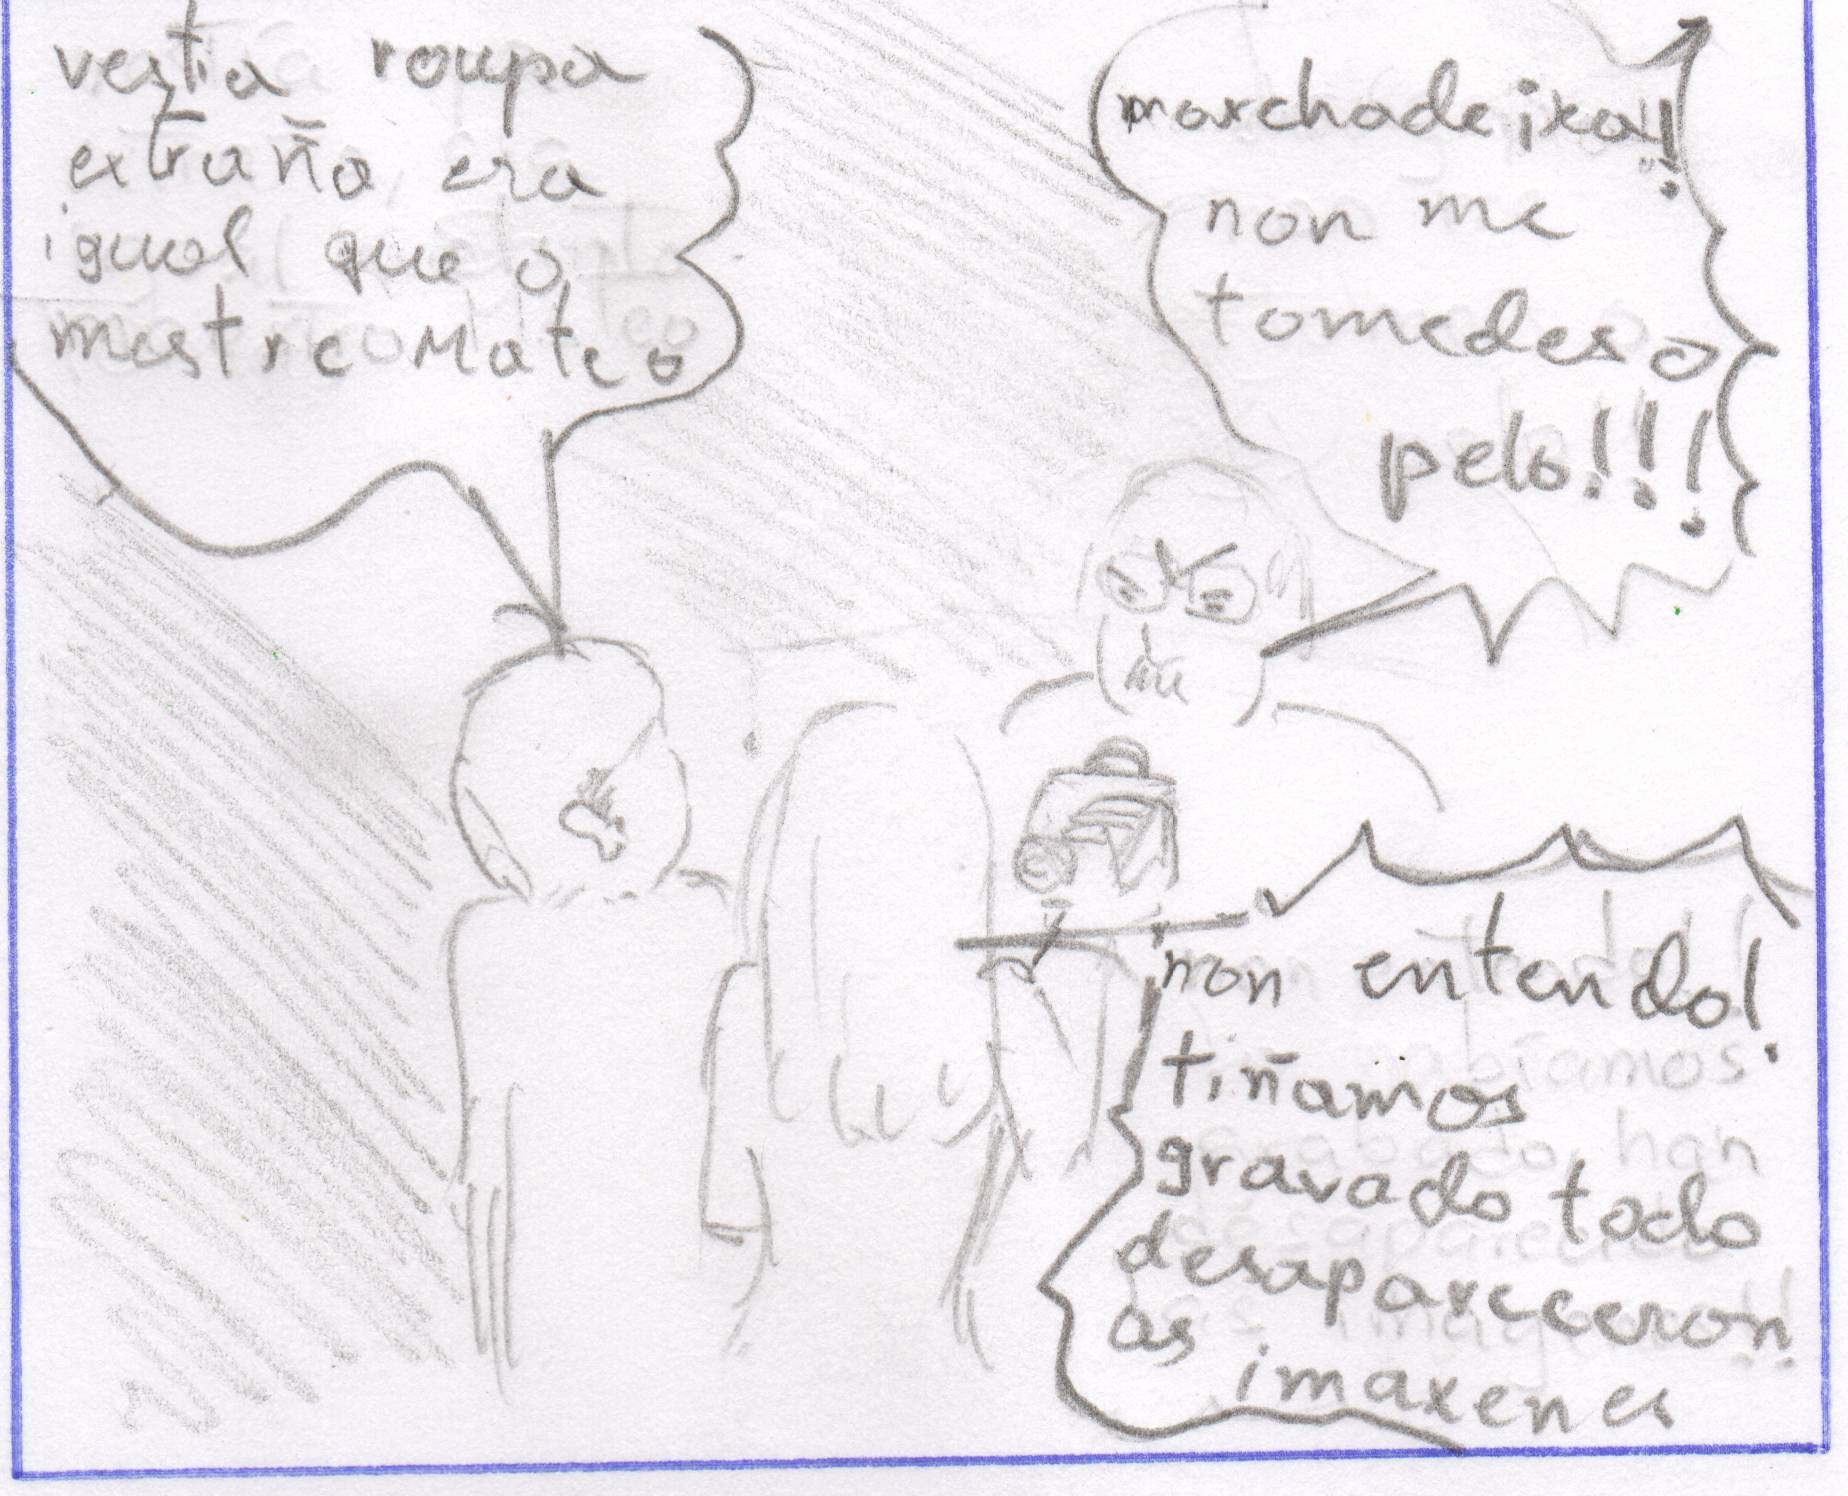 vestía roupa
extraña, era
igual que o
mestre Mateo
marchade ixa!!
non me
tomedes o
pelo!!!
non entendo!
tiñamos
gravado todo
desapareceron
as imaxenes